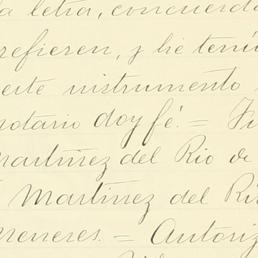 la letra, concuerda
refieren, y he tení
este instrumento
notario doy fé. = Fi
Martínez del Rio de
Martínez del Ri
Meneres. = Autoriz